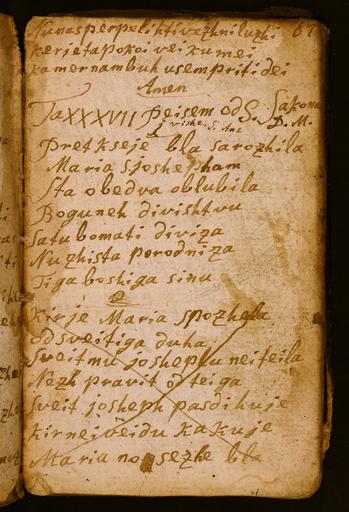 Nunas perpelihti vezhni luzhi 67
kerje ta pokoi vei kumei
kamer nam buh usem priti dei
Amen
Ta XXXVII Peisem od S. Sakona
D. M.
Pretkseje bla sarozhila
Maria s joshepham
Sta obedva oblubila
Boguneh divishtvu
Satu bomati diviza
Nu zhista porodniza
Tiga boshiga sinu
2
Kir je Maria spozhela
od sveitiga duha
Sveitmu joshephu nei teila
Nezh pravit od teiga
Sveit josheph pasdihuje
kir nei veidu kakuje
Maria no sezhe bla